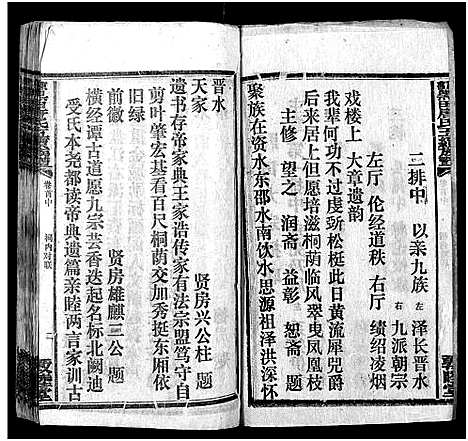 三排中 以亲九族 左 泽长晋水
右 九派朝宗
左厅 伦经道秩 右厅 绩绍凌烟
戏楼上 大章遗韵
何功不过虔斲松梃此日黄流犀兕爵
居后居上但愿培滋桐荫临风翠叟凤凰枝
主修 望之 润斋 益彰 恕斋 题
聚族在资水东邵水南饮水思源祖泽洪深怀
晋水
天家 贤房兴公柱 题
遗书存帝家典王家诰传家有法宗盟笃守自
剪叶肇宏基看百尺桐荫交加秀挺东厢依
旧绿
前徽 贤房雄麒三公 题
横经谭古道愿九宗芸香迭起名标北阙迪
受氏本尧都读帝典遗篇亲睦两言家训古
卷首中 祠内对联 二